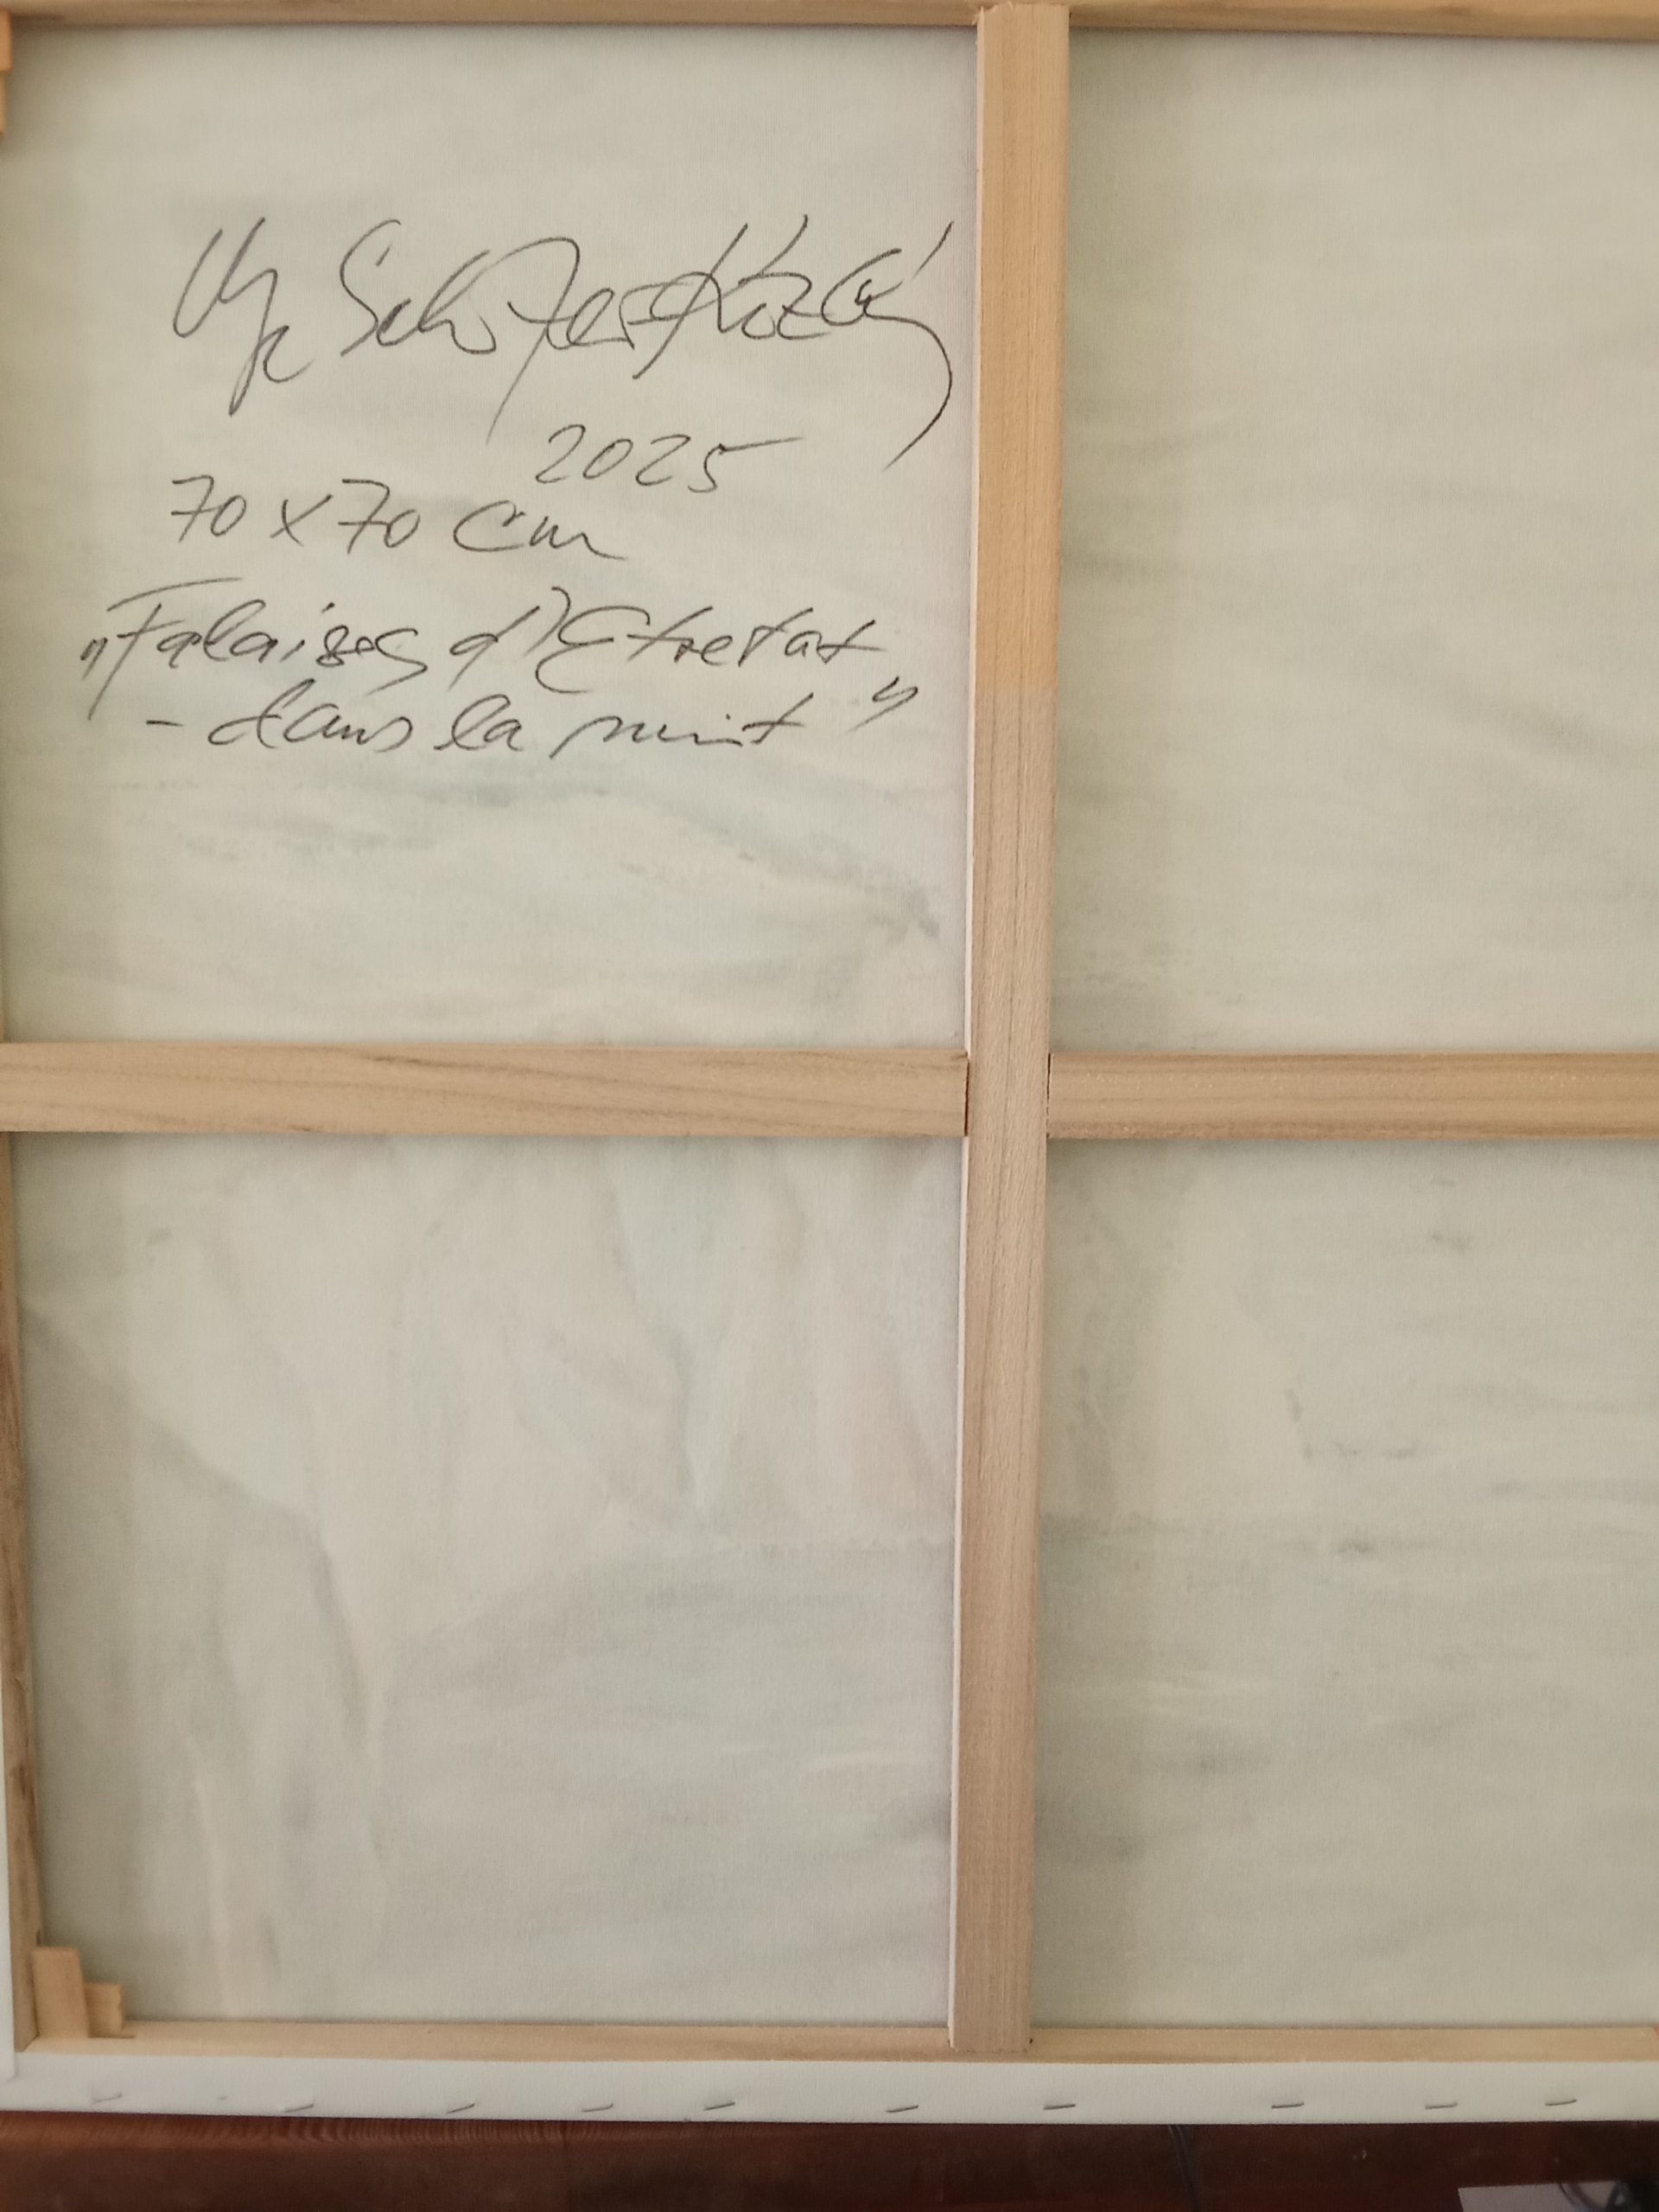 2025
70 x 70 cm
„Falaises d'Etretat
- dans la nuit"